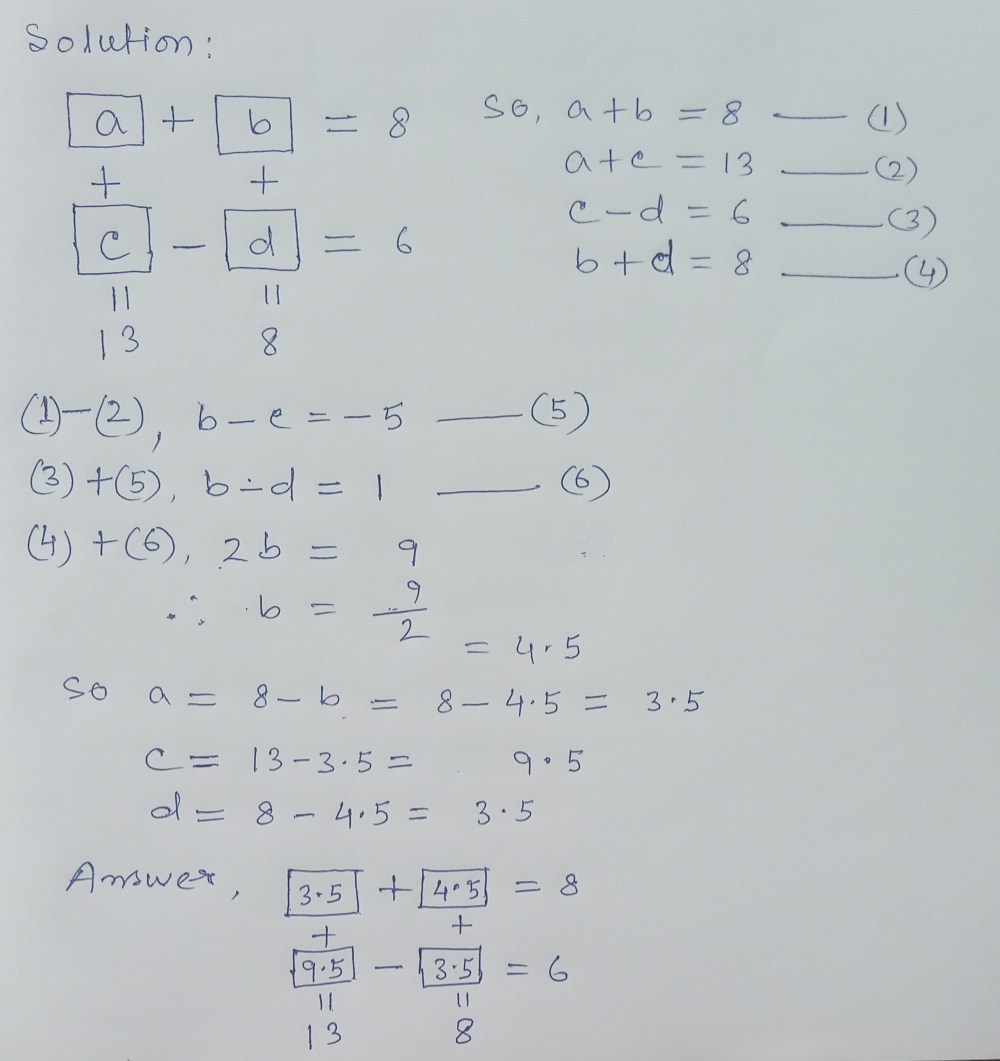 Solution:
a + b = 8
+ +
c - d = 6
= =
13 8
So, a+b = 8 —— (1)
a+c = 13 —— (2)
c-d = 6 —— (3)
b+d = 8 —— (4)
(1)-(2), b-c = -5 —— (5)
(3)+(5), b-d = 1 —— (6)
(4)+(6), 2b = 9
∴ b = 9/2 = 4.5
So a = 8-b = 8-4.5 = 3.5
c = 13-3.5 = 9.5
d = 8-4.5 = 3.5
Answer, 3.5 + 4.5 = 8
+ +
9.5 - 3.5 = 6
= =
13 8